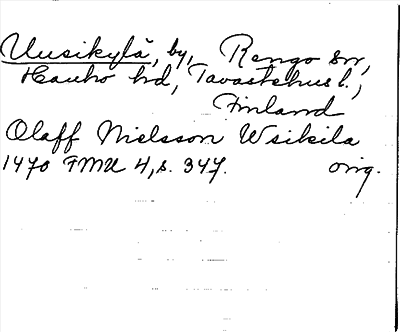 Uusikylä, by, Rengo sn,
Hauho hd, Tavastehus l.,
Finland
Olaff Nielsson Wsikila
1470 FMU 4, s. 347. orig.